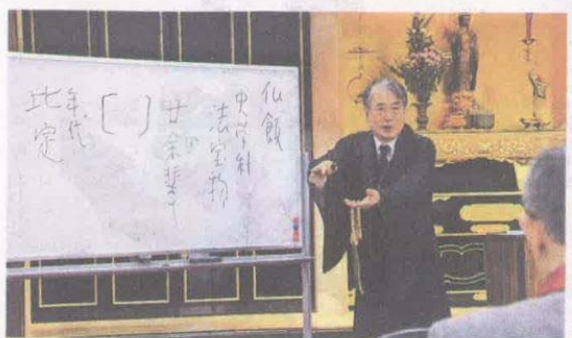 仏飯
史学科
法宝物
廿余輩
〔 〕
年代
比定